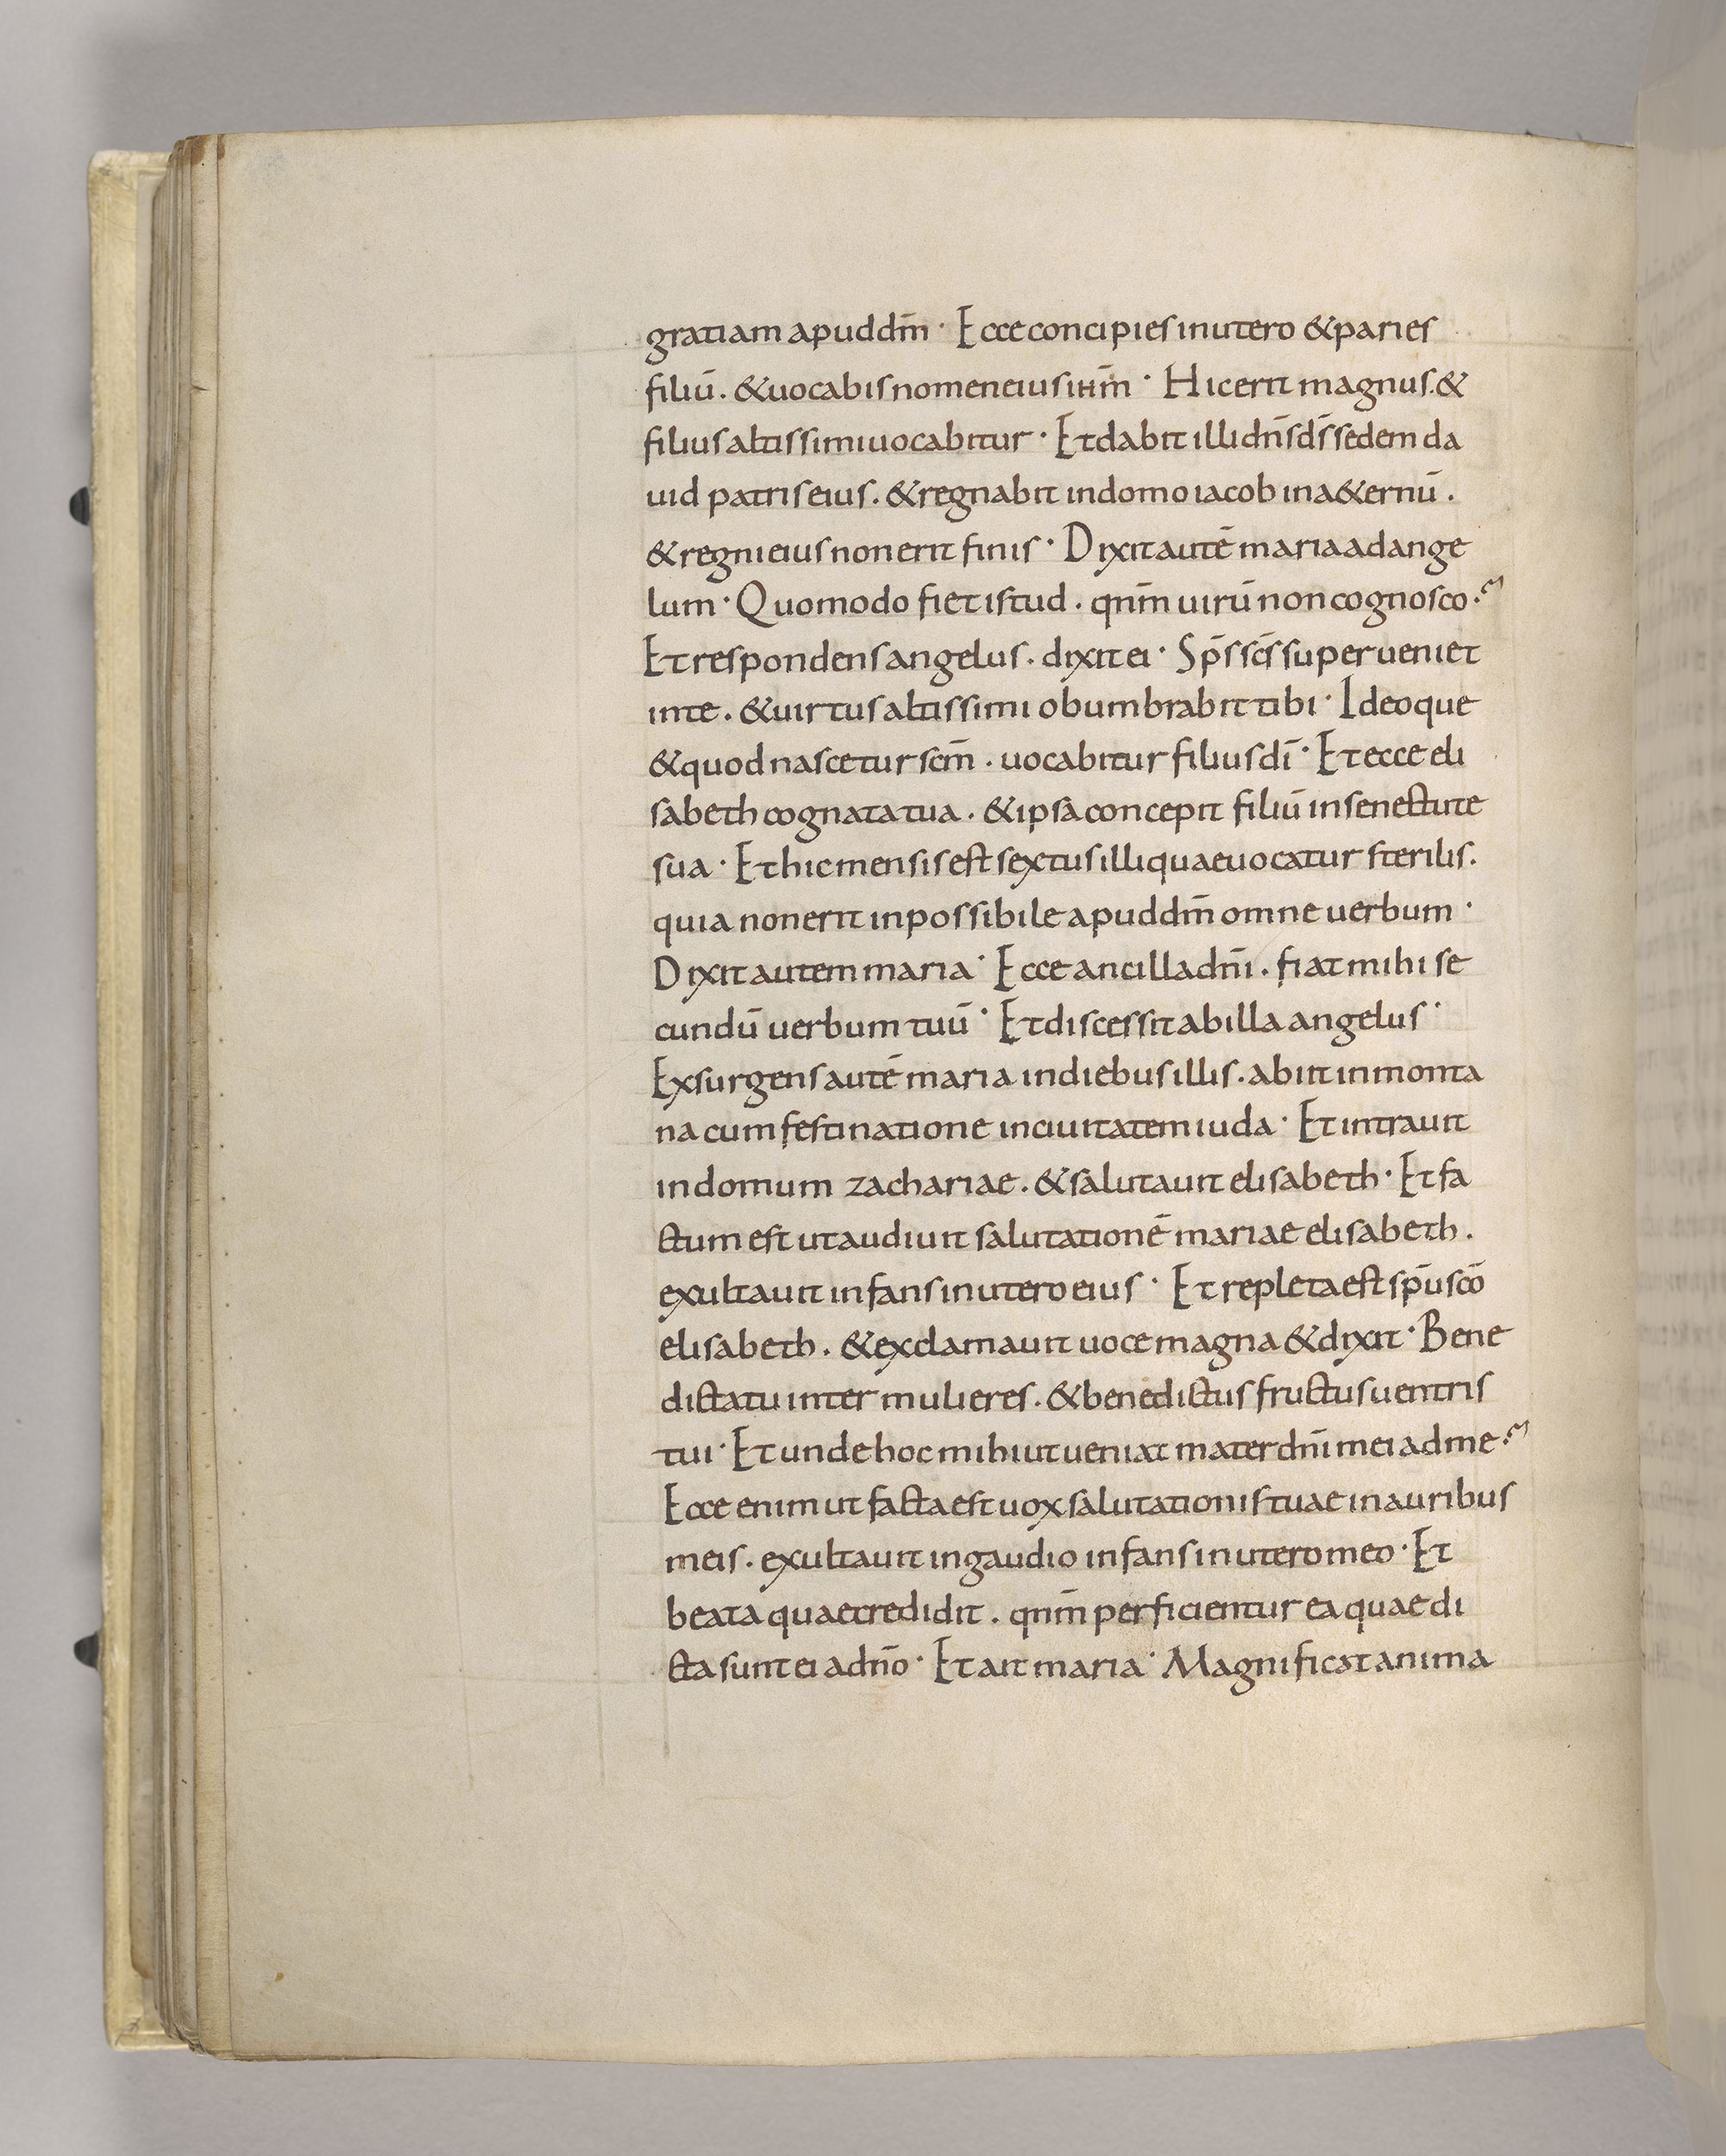 gratiam apud dm̄ · Ecce concipies in utero & paries
filiū . & uocabis nomen eius ihm̄ · Hic erit magnus . &
filius altissimi uocabitur · Et dabit illi dn̄s ds̄ sedem da
uid patris eius . & regnabit in domo iacob in a&ernū .
& regni eius non erit finis · Dixit autē maria ad ange
lum · Quomodo fiet istud . qnm̄ uirū non cognosco .~
Et respondens angelus . dixit ei · Sp̄s sc̄s superueniet
in te . & uirtus altissimi obumbrabit tibi · Ideoque
& quod nascetur scm̄ . uocabitur filius dī · Et ecce eli
sabeth cognata tua . & ipsa concepit filiū in senectute
sua · Et hic mensis est sextus illi quae uocatur sterilis .
quia non erit inpossibile apud dm̄ omne uerbum ·
Dixit autem maria · Ecce ancilla dn̄i . fiat mihi se
cundū uerbum tuū · Et discessit ab illa angelus ·
Exsurgens autē maria in diebus illis . abiit in monta
na cum festinatione in ciuitatem iuda · Et intrauit
in domum zachariae . & salutauit elisabeth · Et fa
ctum est ut audiuit salutationē mariae elisabeth .
exultauit infans in utero eius · Et repleta est sp̄u scō
elisabeth . & exclamauit uoce magna & dixit · Bene
dicta tu inter mulieres . & benedictus fructus uentris
tui · Et unde hoc mihi ut ueniat mater dn̄i mei ad me .~
Ecce enim ut facta est uox salutationis tuae in auribus
meis . exultauit in gaudio infans in utero meo · Et
beata quae credidit . qnm̄ perficientur ea quae di
cta sunt ei a dn̄o · Et ait maria · Magnificat anima